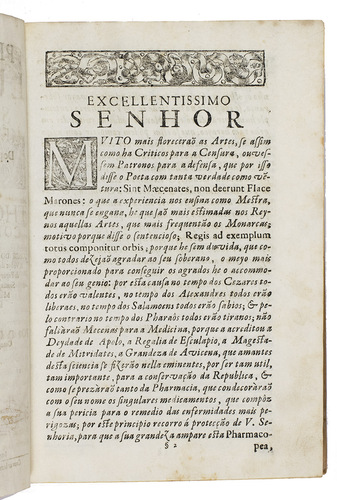 EXCELLENTISSIMO
SENHOR
MVITO mais florecerão as Artes, se assim
como ha Criticos para a Censura, ouves-
sem Patronos para a defensa, que por isso
disse o Poeta com tanta verdade como ve-
tura: Sint Mœcenates, non deerunt Flace
Marones: o que a experiencia nos ensina como Mestra,
que nunca se engana, he que são mais estimadas nos Rey-
nos aquellas Artes, que mais frequentão os Monarcas;
motivo porque disse o sentencioso; Regis ad exemplum
totus componitur orbis; porque he sem duvida, que co-
mo todos dezejão agradar ao seu soberano, o meyo mais
proporcionado para conseguir os agrados he o accommo-
dar ao seu genio: por esta causa no tempo dos Cezares to-
dos erão valentes, no tempo dos Alexandres todos erão
liberaes, no tempo dos Salamoens todos erão sabios; & pe-
lo contrario no tempo dos Pharaós todos erão tiranos; não
faltarão Mecenas para a Medicina, porque a acreditou a
Deydade de Apolo, a Regalia de Esculapio, a Magesta-
de de Mitridates, a Grandeza de Avicena, que amantes
desta siencia se fizerão nella eminentes, por ser tam util,
tam importante, para a conservação da Republica, &
como se prezarão tanto da Pharmacia, que condecorarão
com o seu nome os singulares medicamentos, que compòz
a sua pericia para o remedio das enfermidades mais pe-
rigozas; por este principio recorro á protecção de V. Se-
nhoria, para que a sua grandeza ampare esta Pharmaco-
§ 2
pea,